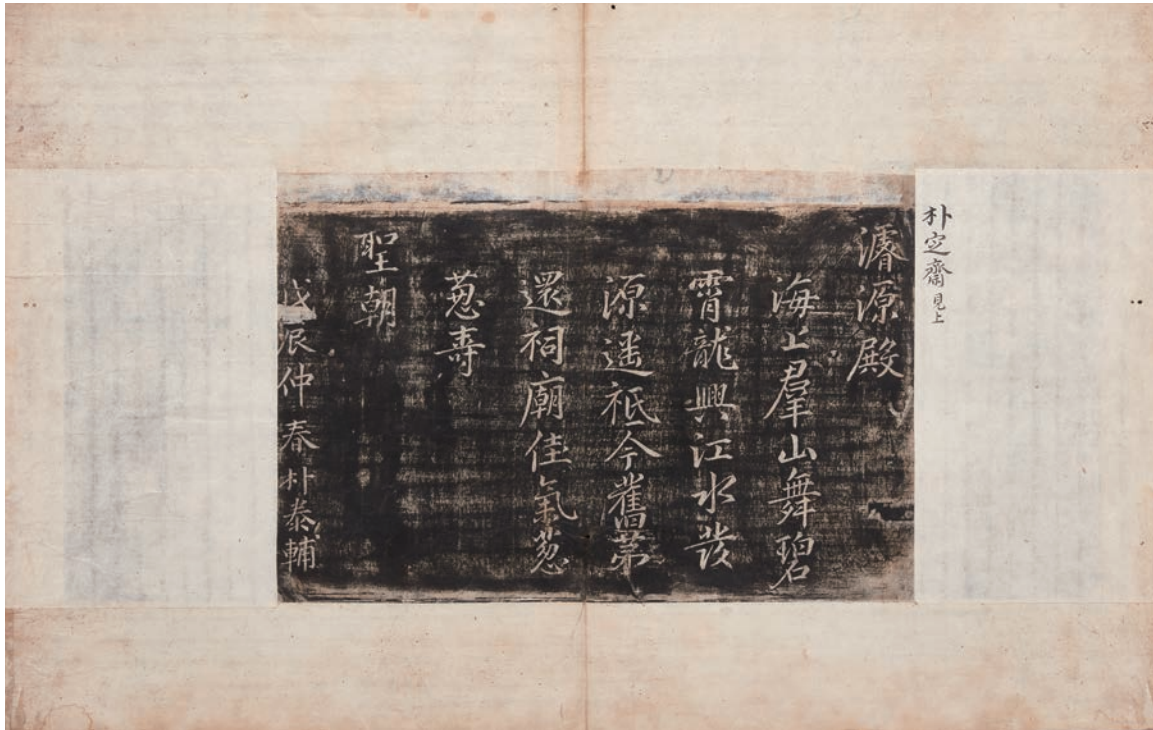 朴定齋見上
濬源殿
海上羣山舞碧
霄龍興江水發
源遥祗今舊苐
還祠廟佳氣葱
葱壽
聖朝
戊辰仲春朴泰輔